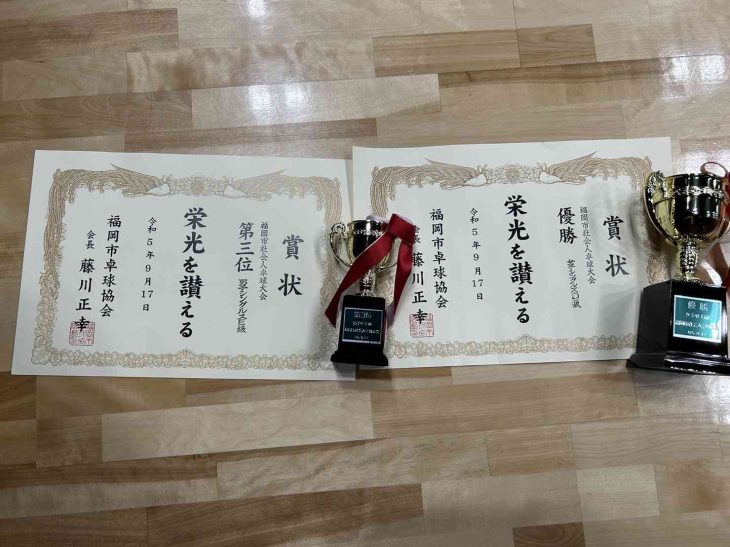 賞状
福岡市社会人卓球大会
優勝
栄光を讃える
令和5年9月17日
福岡市卓球協会
会長 藤川正幸
賞状
福岡市社会人卓球大会
第三位
栄光を讃える
令和5年9月17日
福岡市卓球協会
会長 藤川正幸
第3位
優勝